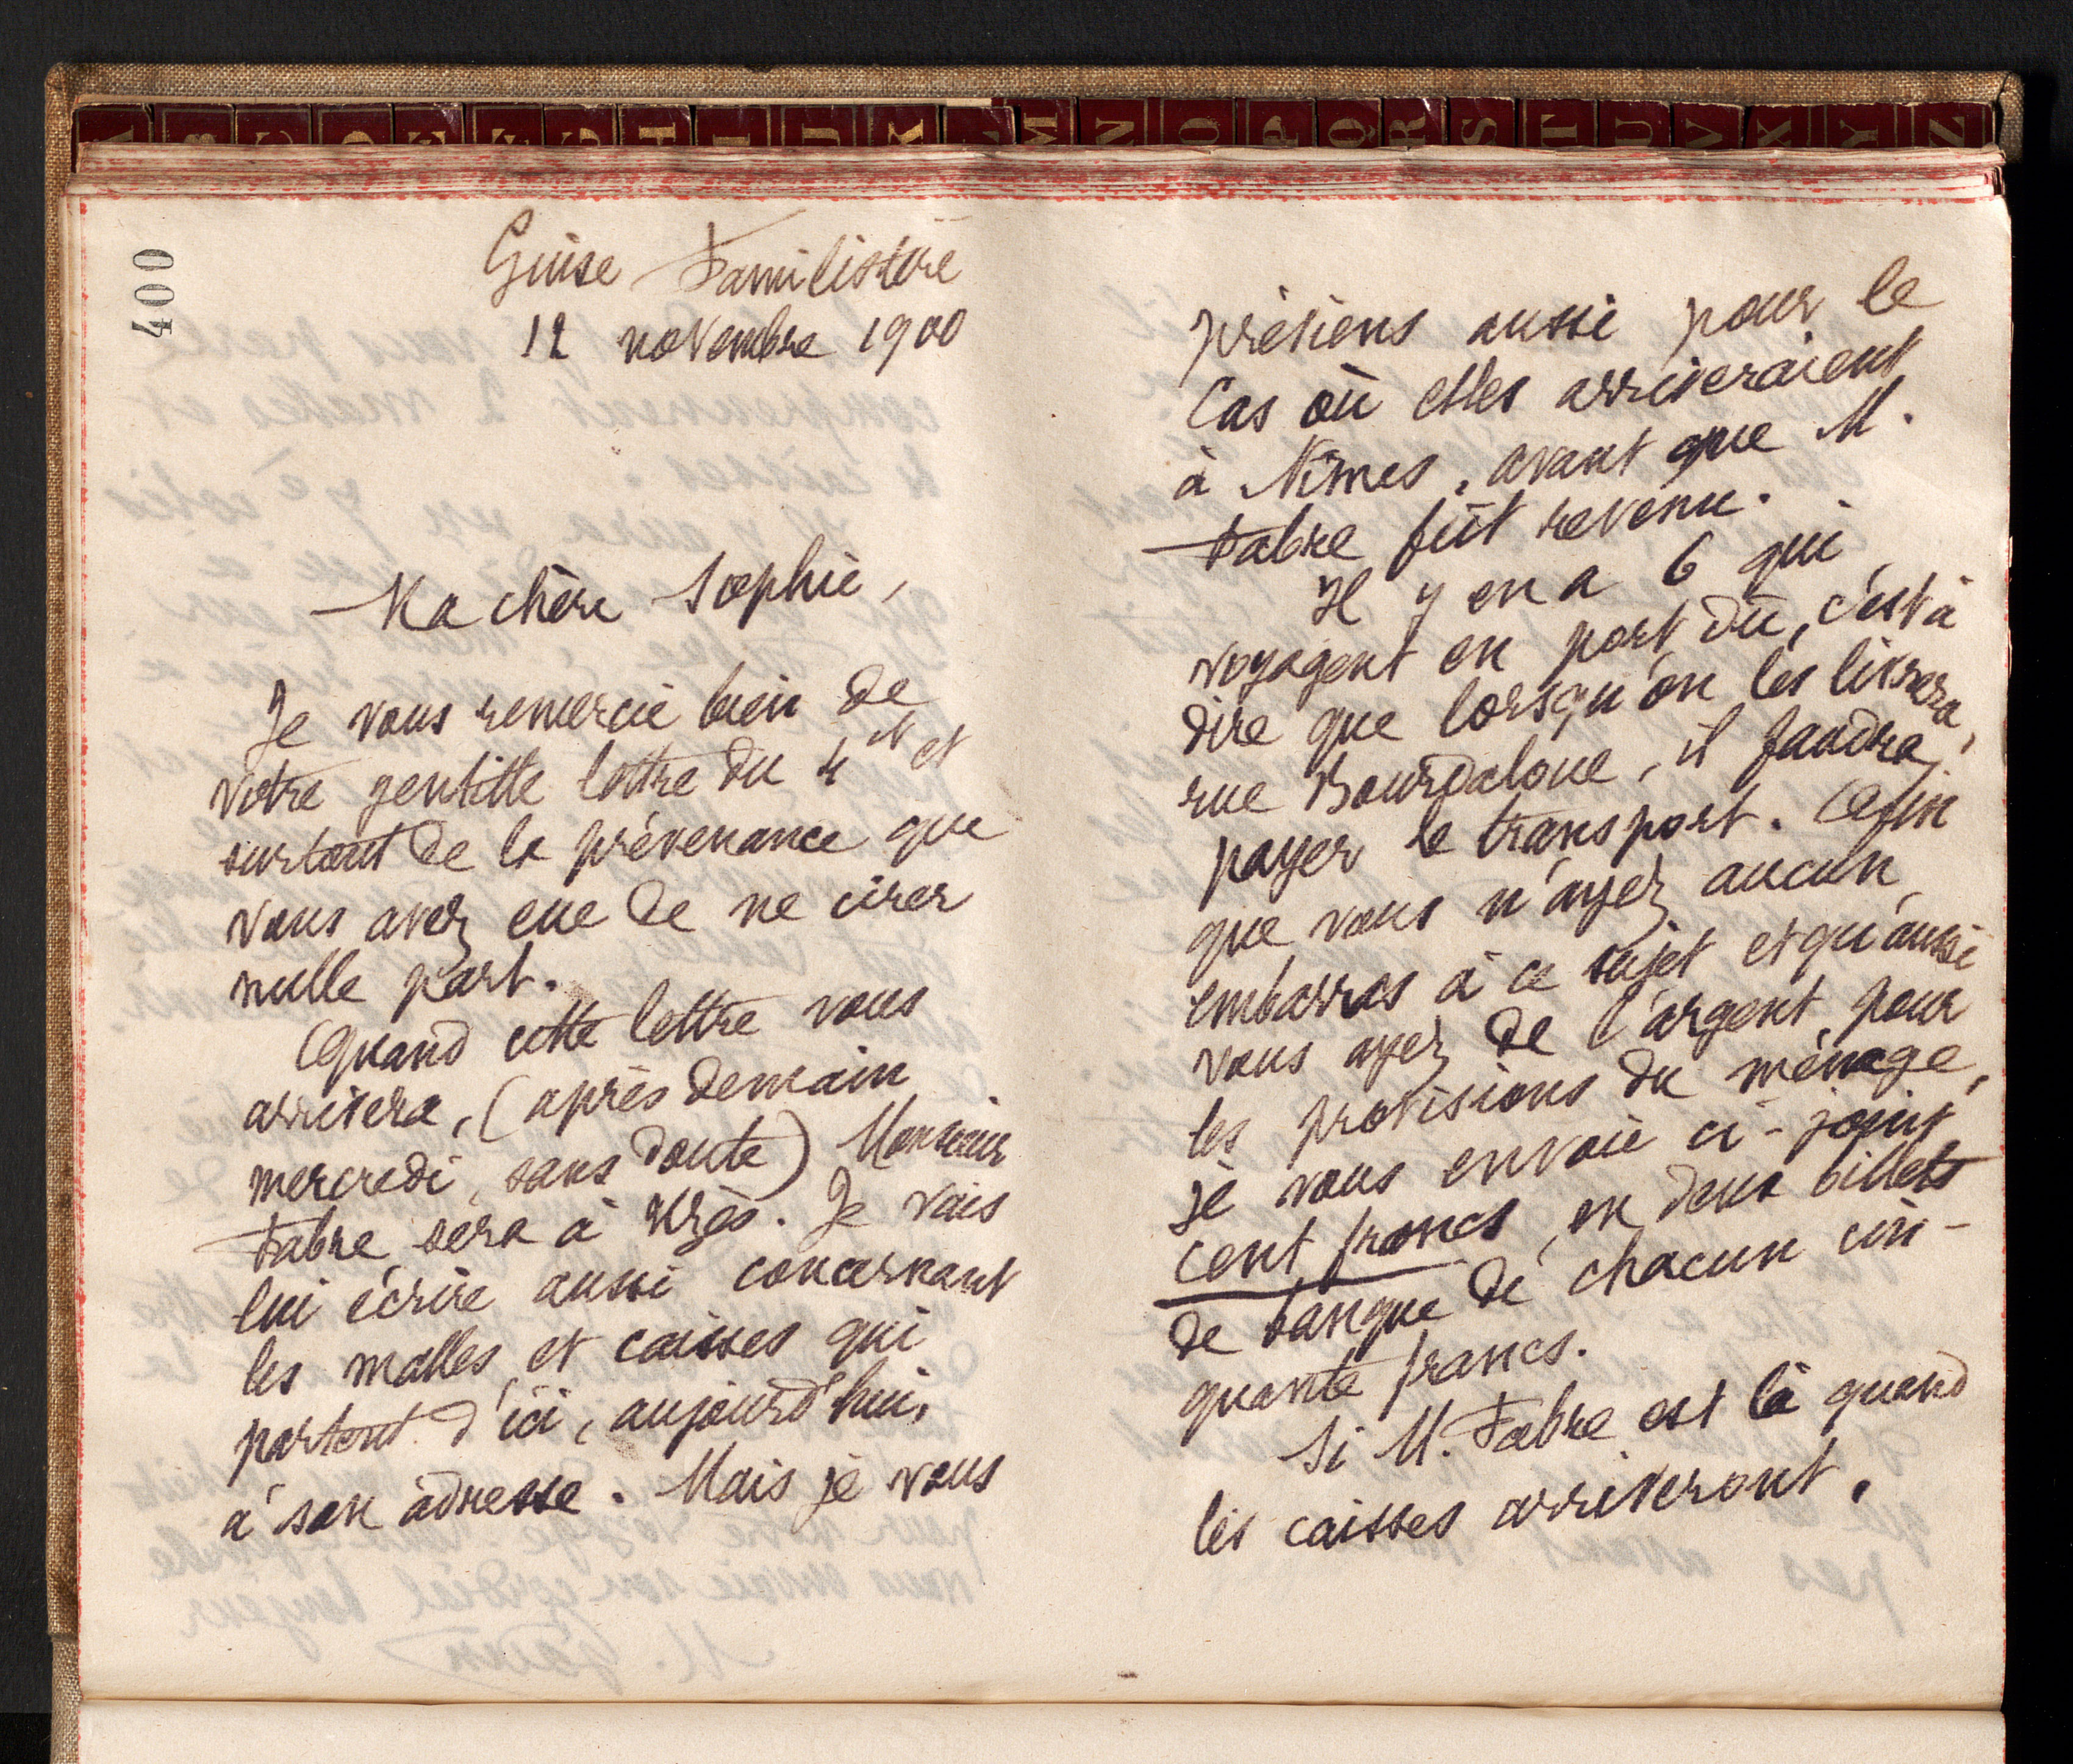 A B C D E F G H I J K L M N O P Q R S T U V X Y Z
400
Guise Familistère
12 novembre 1900
Ma chère Sophie,
Je vous remercie bien de
votre gentille lettre du 4 et
surtout de la prévenance que
vous avez eue de ne cirer
nulle part.
Quand cette lettre vous
arrivera, (après demain
mercredi, sans doute) Monsieur
Fabre sera à Uzès. Je vais
lui écrire aussi concernant
les malles et caisses qui
partent d'ici, aujourd'hui,
à son adresse. Mais je vous
préviens aussi pour le
cas où elles arriveraient
à Nîmes, avant que M.
Fabre fût revenu.
Il y en a 6 qui
voyagent en port dû, c'est à
dire que lorsqu'on les livrera,
rue Bourdaloue, il faudra
payer le transport. Afin
que vous n'ayez aucun
embarras à ce sujet et qu'aussi
vous ayez de l'argent pour
les provisions du ménage,
je vous envoie ci-joint
cent francs, en deux billets
de banque de chacun cin-
quante francs.
Si M. Fabre est là quand
les caisses arriveront,